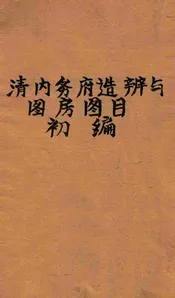 清内务府造辦与
图房图目
初编